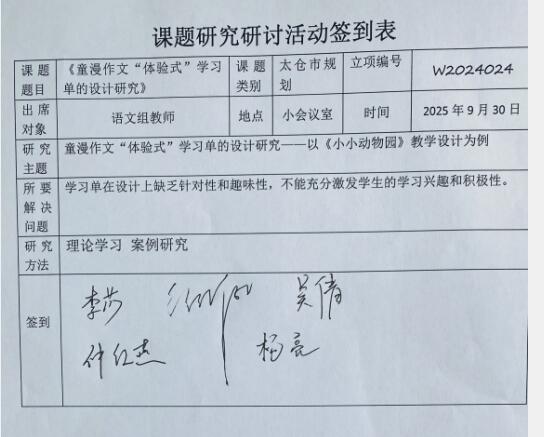 课题研究研讨活动签到表
课题 《童漫作文“体验式”学习 课题 太仓市规 立项编号 W2024024
题目 单的设计研究》 类别 划
出席 语文组教师 地点 小会议室 时间 2025年9月30日
对象
研究 童漫作文“体验式”学习单的设计研究——以《小小动物园》教学设计为例
主题
所要 学习单在设计上缺乏针对性和趣味性，不能充分激发学生的学习兴趣和积极性。
解决
问题
研究 理论学习 案例研究
方法
签到
李莎 吴倩
仲红杰 杨亮